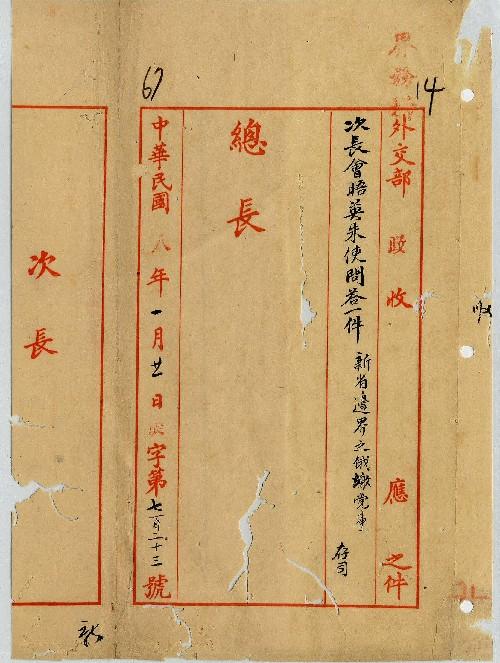 界務
14
外交部 收 應 之件
次長會晤英朱使問答一件 新省邊界之俄
存司
總長
67
中華民國八年一月廿一日 字第七百二十三號
次長